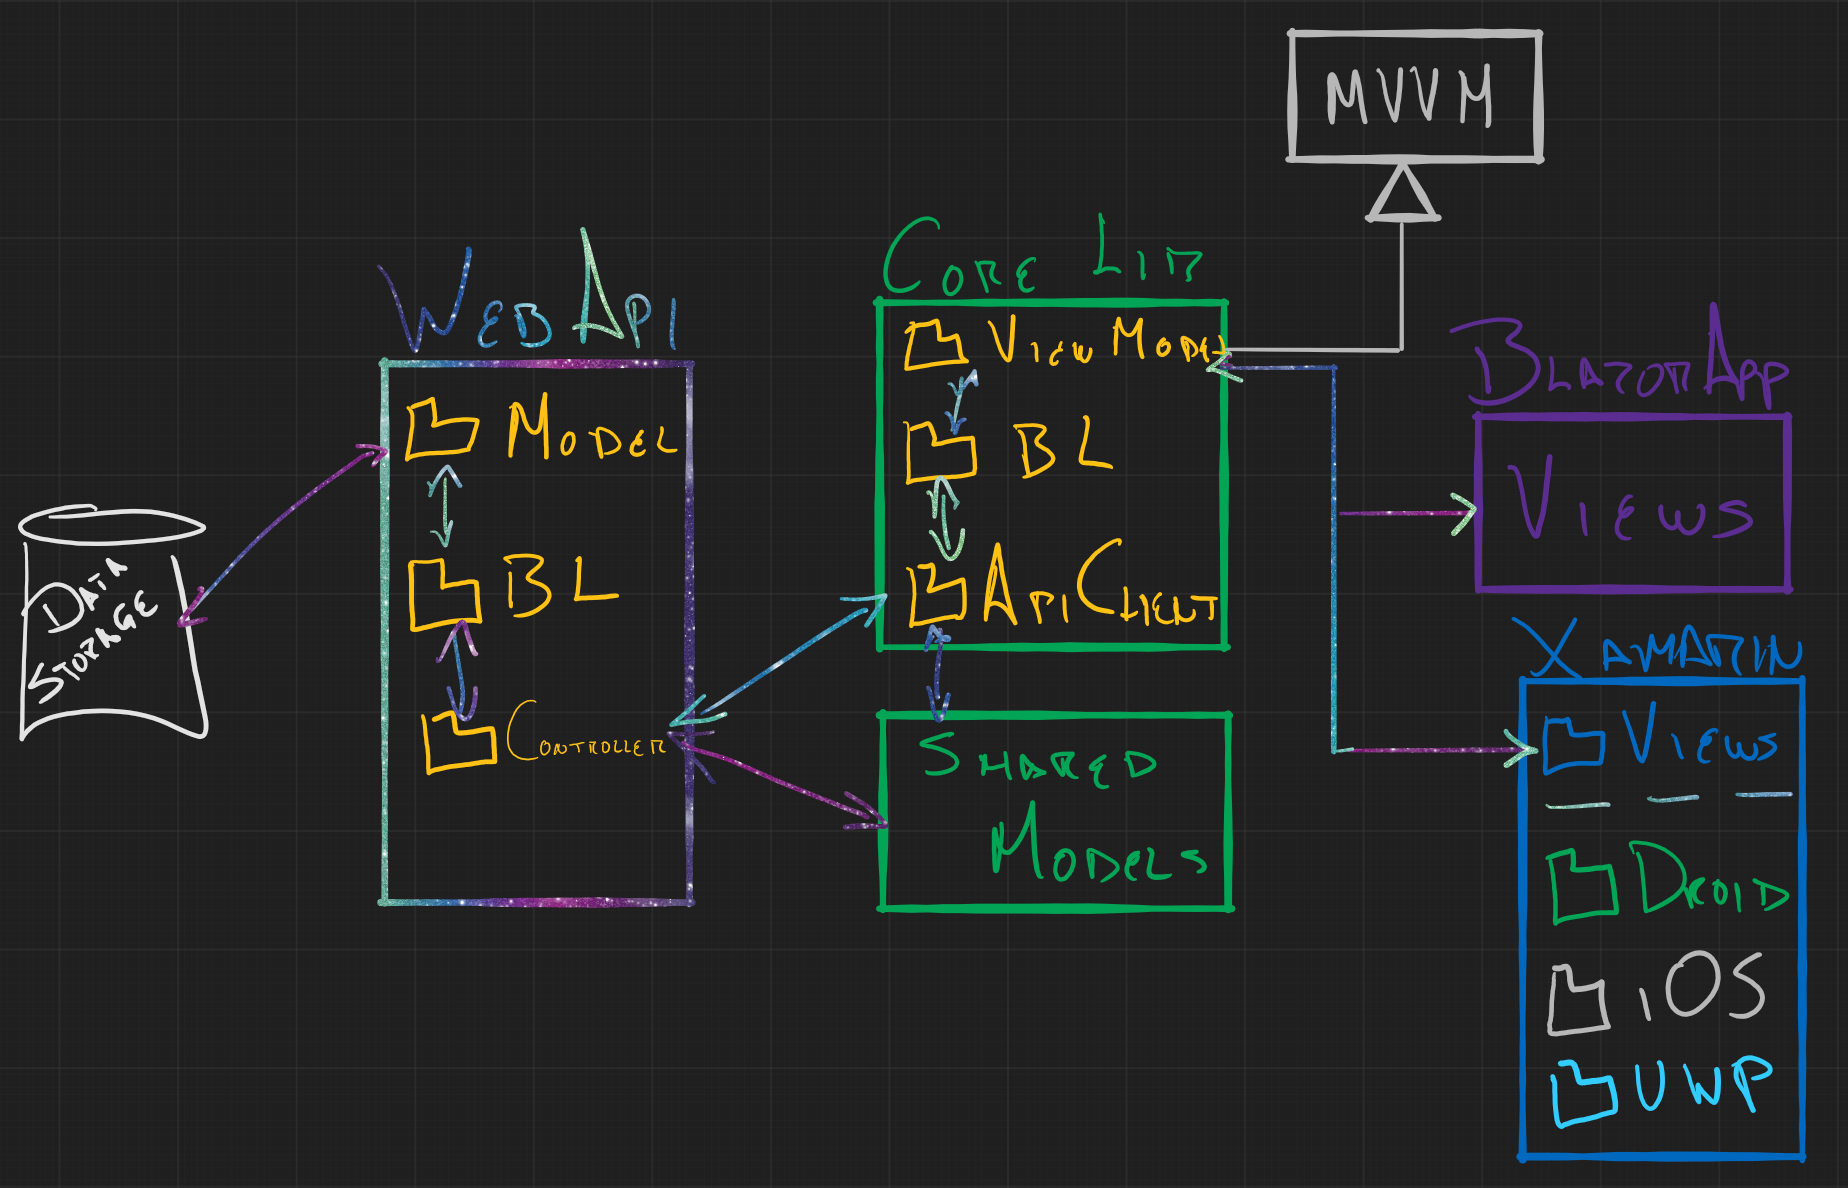 MVVM
Web Api
Model
BL
Controller
Data
Storage
Core Lib
View Model
BL
ApiClient
Shared
Models
BlazorApp
Views
Xamarin
Views
Droid
iOS
UWP